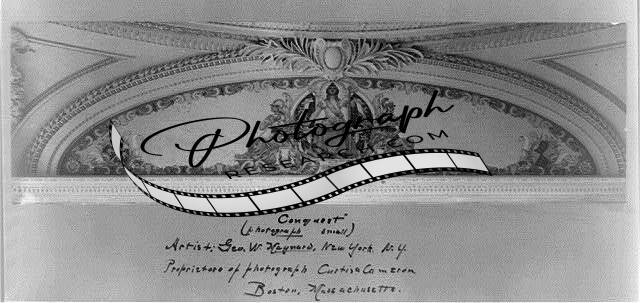 Photograph
RESEARCH.COM
Conquest"
(photograph small)
Artist; Geo. W. Maynard, New York. N.Y.
Proprietors of photograph Curtis & Cameron
Boston, Massachusetts.